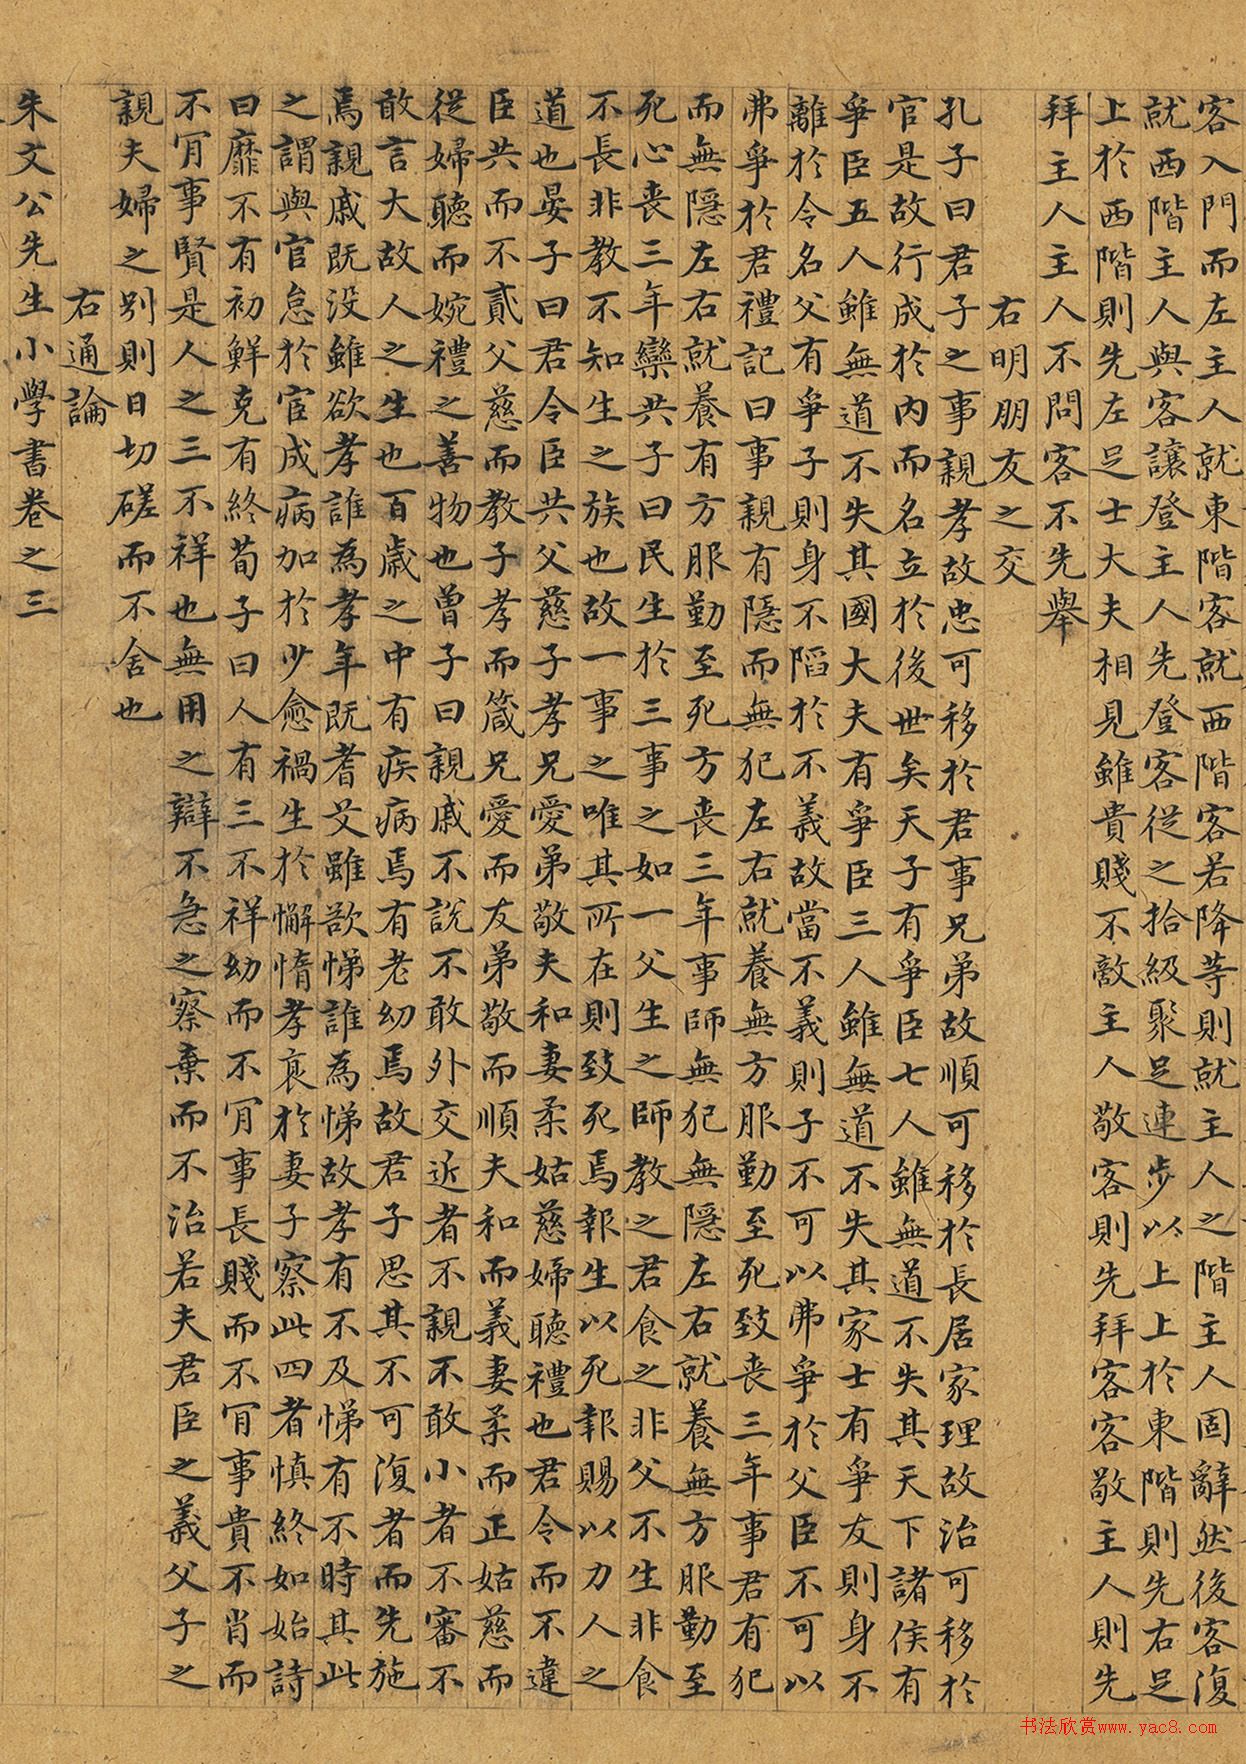 客入門而左主人就東階客就西階客若降等則就主人之階主人固辭然後客復
就西階主人與客讓登主人先登客從之拾級聚足連步以上上於東階則先右足
上於西階則先左足士大夫相見雖貴賤不敵主人敬客則先拜客客敬主人則先
拜主人主人不問客不先舉
右明朋友之交
孔子曰君子之事親孝故忠可移於君事兄弟故順可移於長居家理故治可移於
官是故行成於內而名立於後世矣天子有爭臣七人雖無道不失其天下諸侯有
爭臣五人雖無道不失其國大夫有爭臣三人雖無道不失其家士有爭友則身不
離於令名父有爭子則身不陷於不義故當不義則子不可以弗爭於父臣不可以
弗爭於君禮記曰事親有隱而無犯左右就養無方服勤至死致丧三年事君有犯
而無隱左右就養有方服勤至死方丧三年事師無犯無隱左右就養無方服勤至
死心丧三年欒共子曰民生於三事之如一父生之師教之君食之非父不生非食
不長非教不知生之族也故一事之唯其所在則致死焉報生以死報賜以力人之
道也晏子曰君令臣共父慈子孝兄愛弟敬夫和妻柔姑慈婦聽禮也君令而不違
臣共而不貳父慈而教子孝而箴兄愛而友弟敬而順夫和而義妻柔而正姑慈而
從婦聽而婉禮之善物也曾子曰親戚不說不敢外交近者不親不敢小者不審不
敢言大故人之生也百歲之中有疾病焉有老幼焉故君子思其不可復者而先施
焉親戚既没雖欲孝誰為孝年既耆艾雖欲悌誰為悌故孝有不及悌有不時其此
之謂與官怠於宦成病加於少愈禍生於懈惰孝衰於妻子察此四者慎終如始詩
曰靡不有初鮮克有終荀子曰人有三不祥幼而不肎事長賤而不肎事貴不肖而
不肎事賢是人之三不祥也無用之辯不急之察棄而不治若夫君臣之義父子之
親夫婦之别則日切磋而不舍也
右通論
朱文公先生小學書卷之三
书法欣赏www.yac8.com